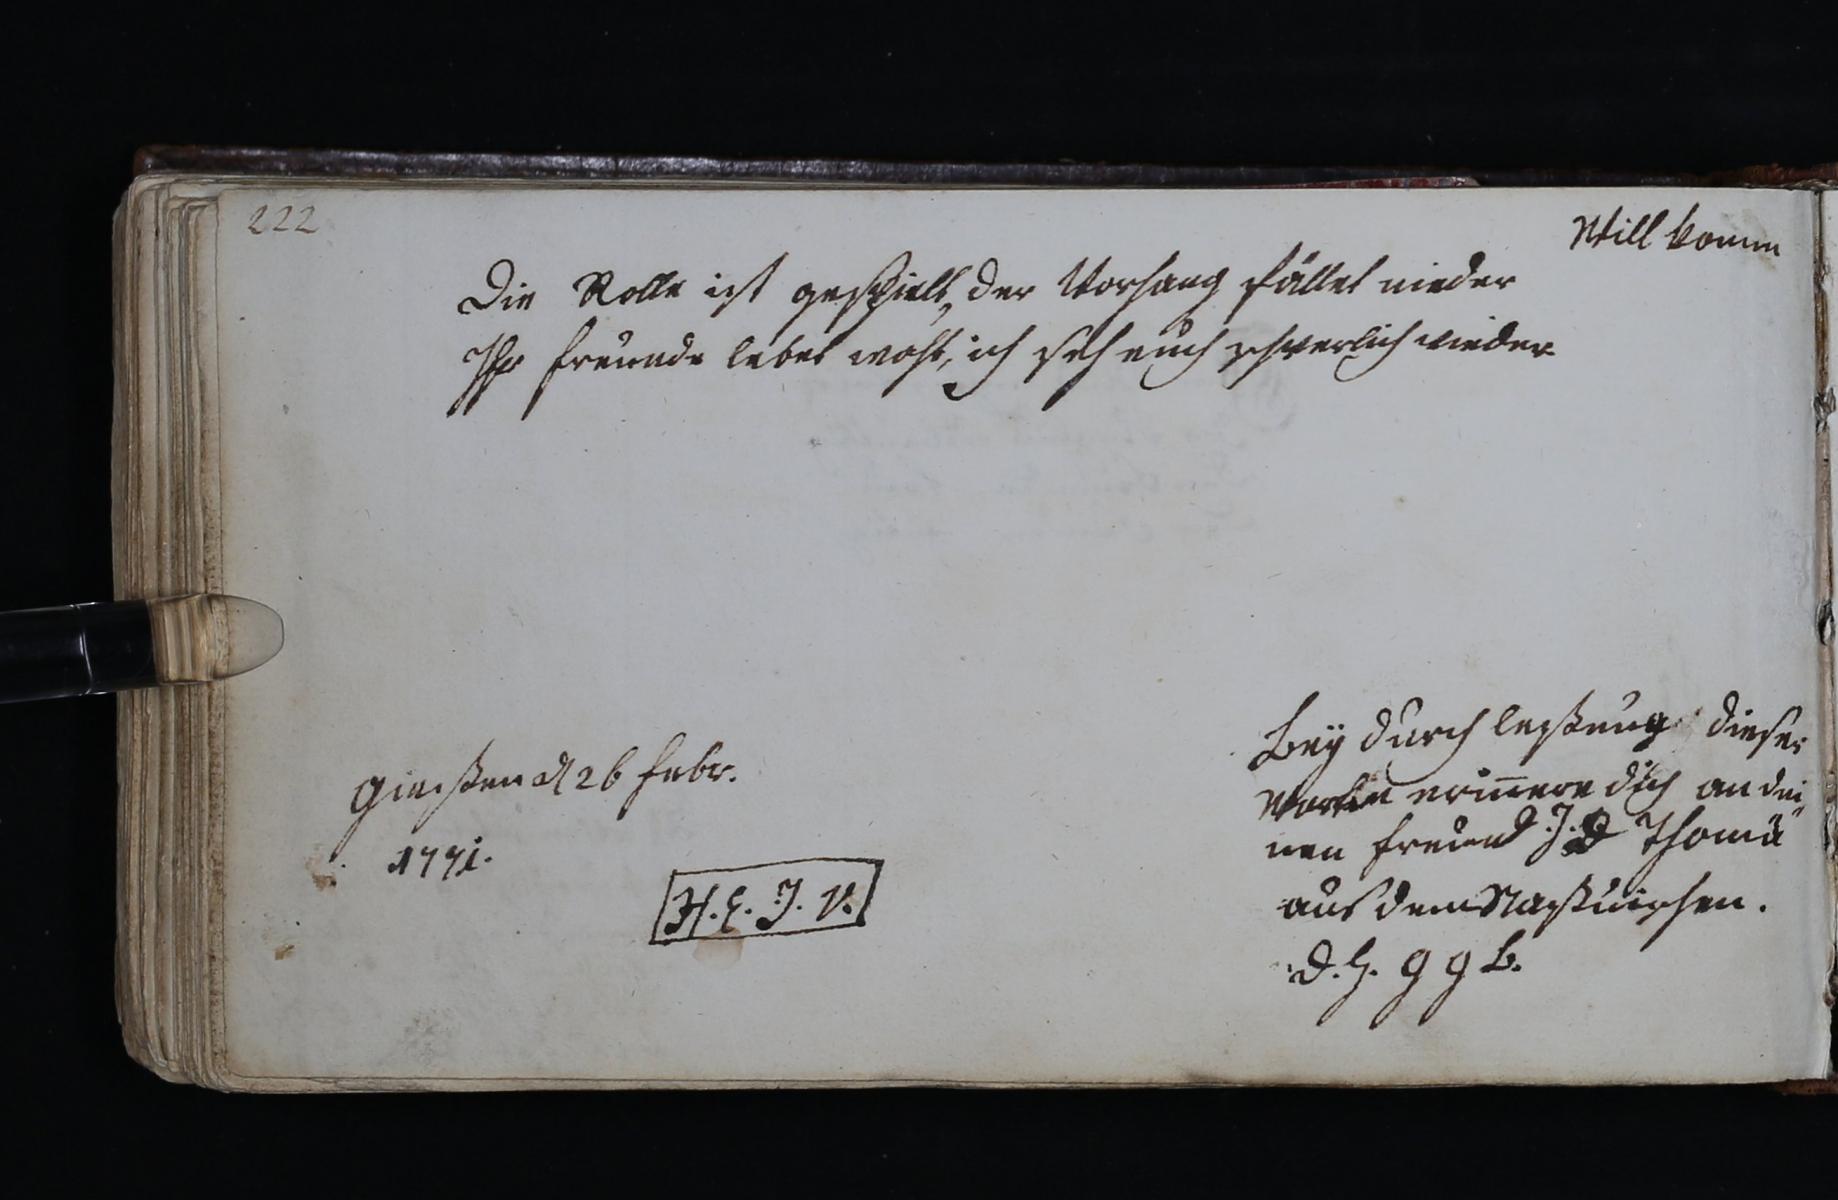 222
Will komm
Die Rolle ist gespielt, der Vorhang fället nieder
Ihr freunde lebet wohl, ich seh euch schwerlich wieder
Bey durch lessung dieser
Worten erinnere dich an dei
nen freund J. D Thomä
aus dem Nassauischen.
D. H. G G B.
Giessen d 26 febr.
1771.
H. E. J. V.